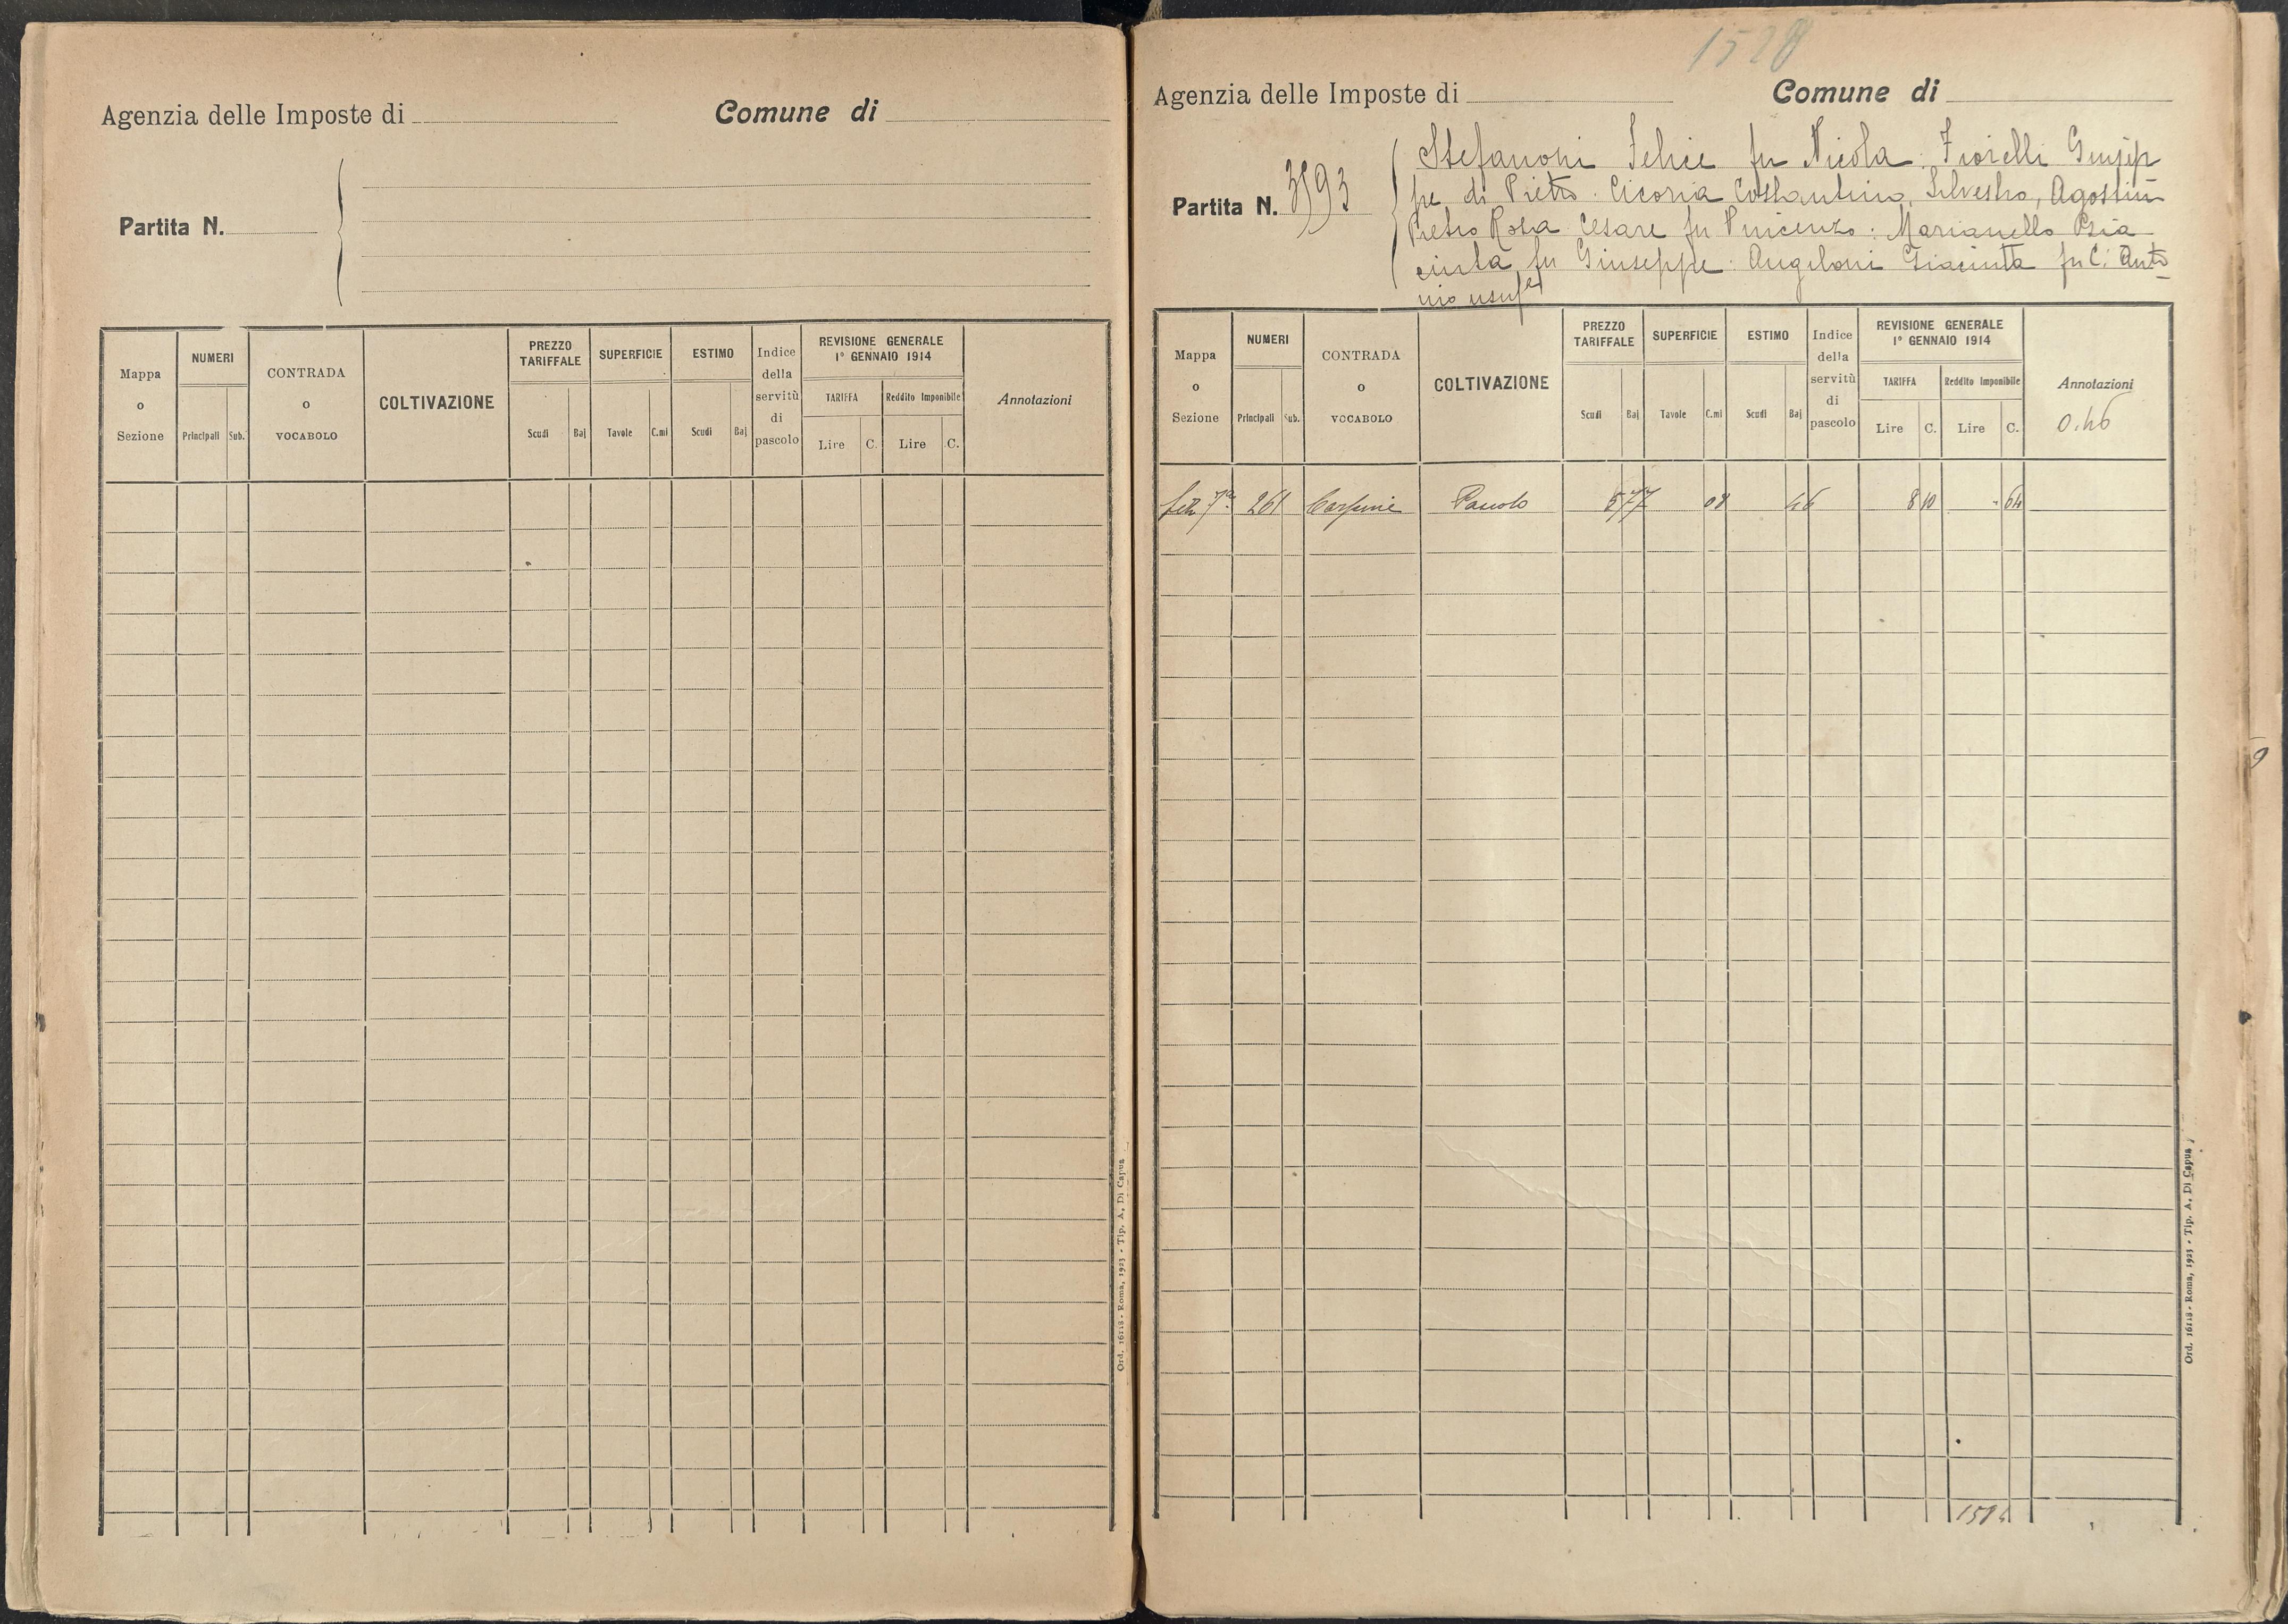 Agenzia delle Imposte di
Comune di
Partita N.
Mappa o Sezione
NUMERI
Principali Sub.
CONTRADA o VOCABOLO
COLTIVAZIONE
PREZZO TARIFFALE
Scudi Baj
SUPERFICIE
Tavole C.mi
ESTIMO
Scudi Baj
Indice della servitù di pascolo
REVISIONE GENERALE
1° GENNAIO 1914
TARIFFA
Lire C.
Reddito Imponibile
Lire C.
Annotazioni
Ord. 16118 - Roma, 1923 - Tip. A. Di Capua
1528
Agenzia delle Imposte di
Comune di
Partita N.
Stefanoni Felice fu Nicola. Fiorelli Giusep
pe di Pietro. Cicoria Costantino, Silvestro, Agostin
Pietro Rosa Cesare fu Vincenzo: Marianello
cinta fu Giuseppe. Angeloni Giacinta fu C. Anto
nio usuf
Mappa o Sezione
NUMERI
Principali Sub.
CONTRADA o VOCABOLO
COLTIVAZIONE
PREZZO TARIFFALE
Scudi Baj
SUPERFICIE
Tavole C.mi
ESTIMO
Scudi Baj
Indice della servitù di pascolo
REVISIONE GENERALE
1° GENNAIO 1914
TARIFFA
Lire C.
Reddito Imponibile
Lire C.
Annotazioni
0.46
Sez 7a 261 Pascolo 577 08 46 8 10 - 64
Ord. 16118 - Roma, 1923 - Tip. A. Di Capua
9